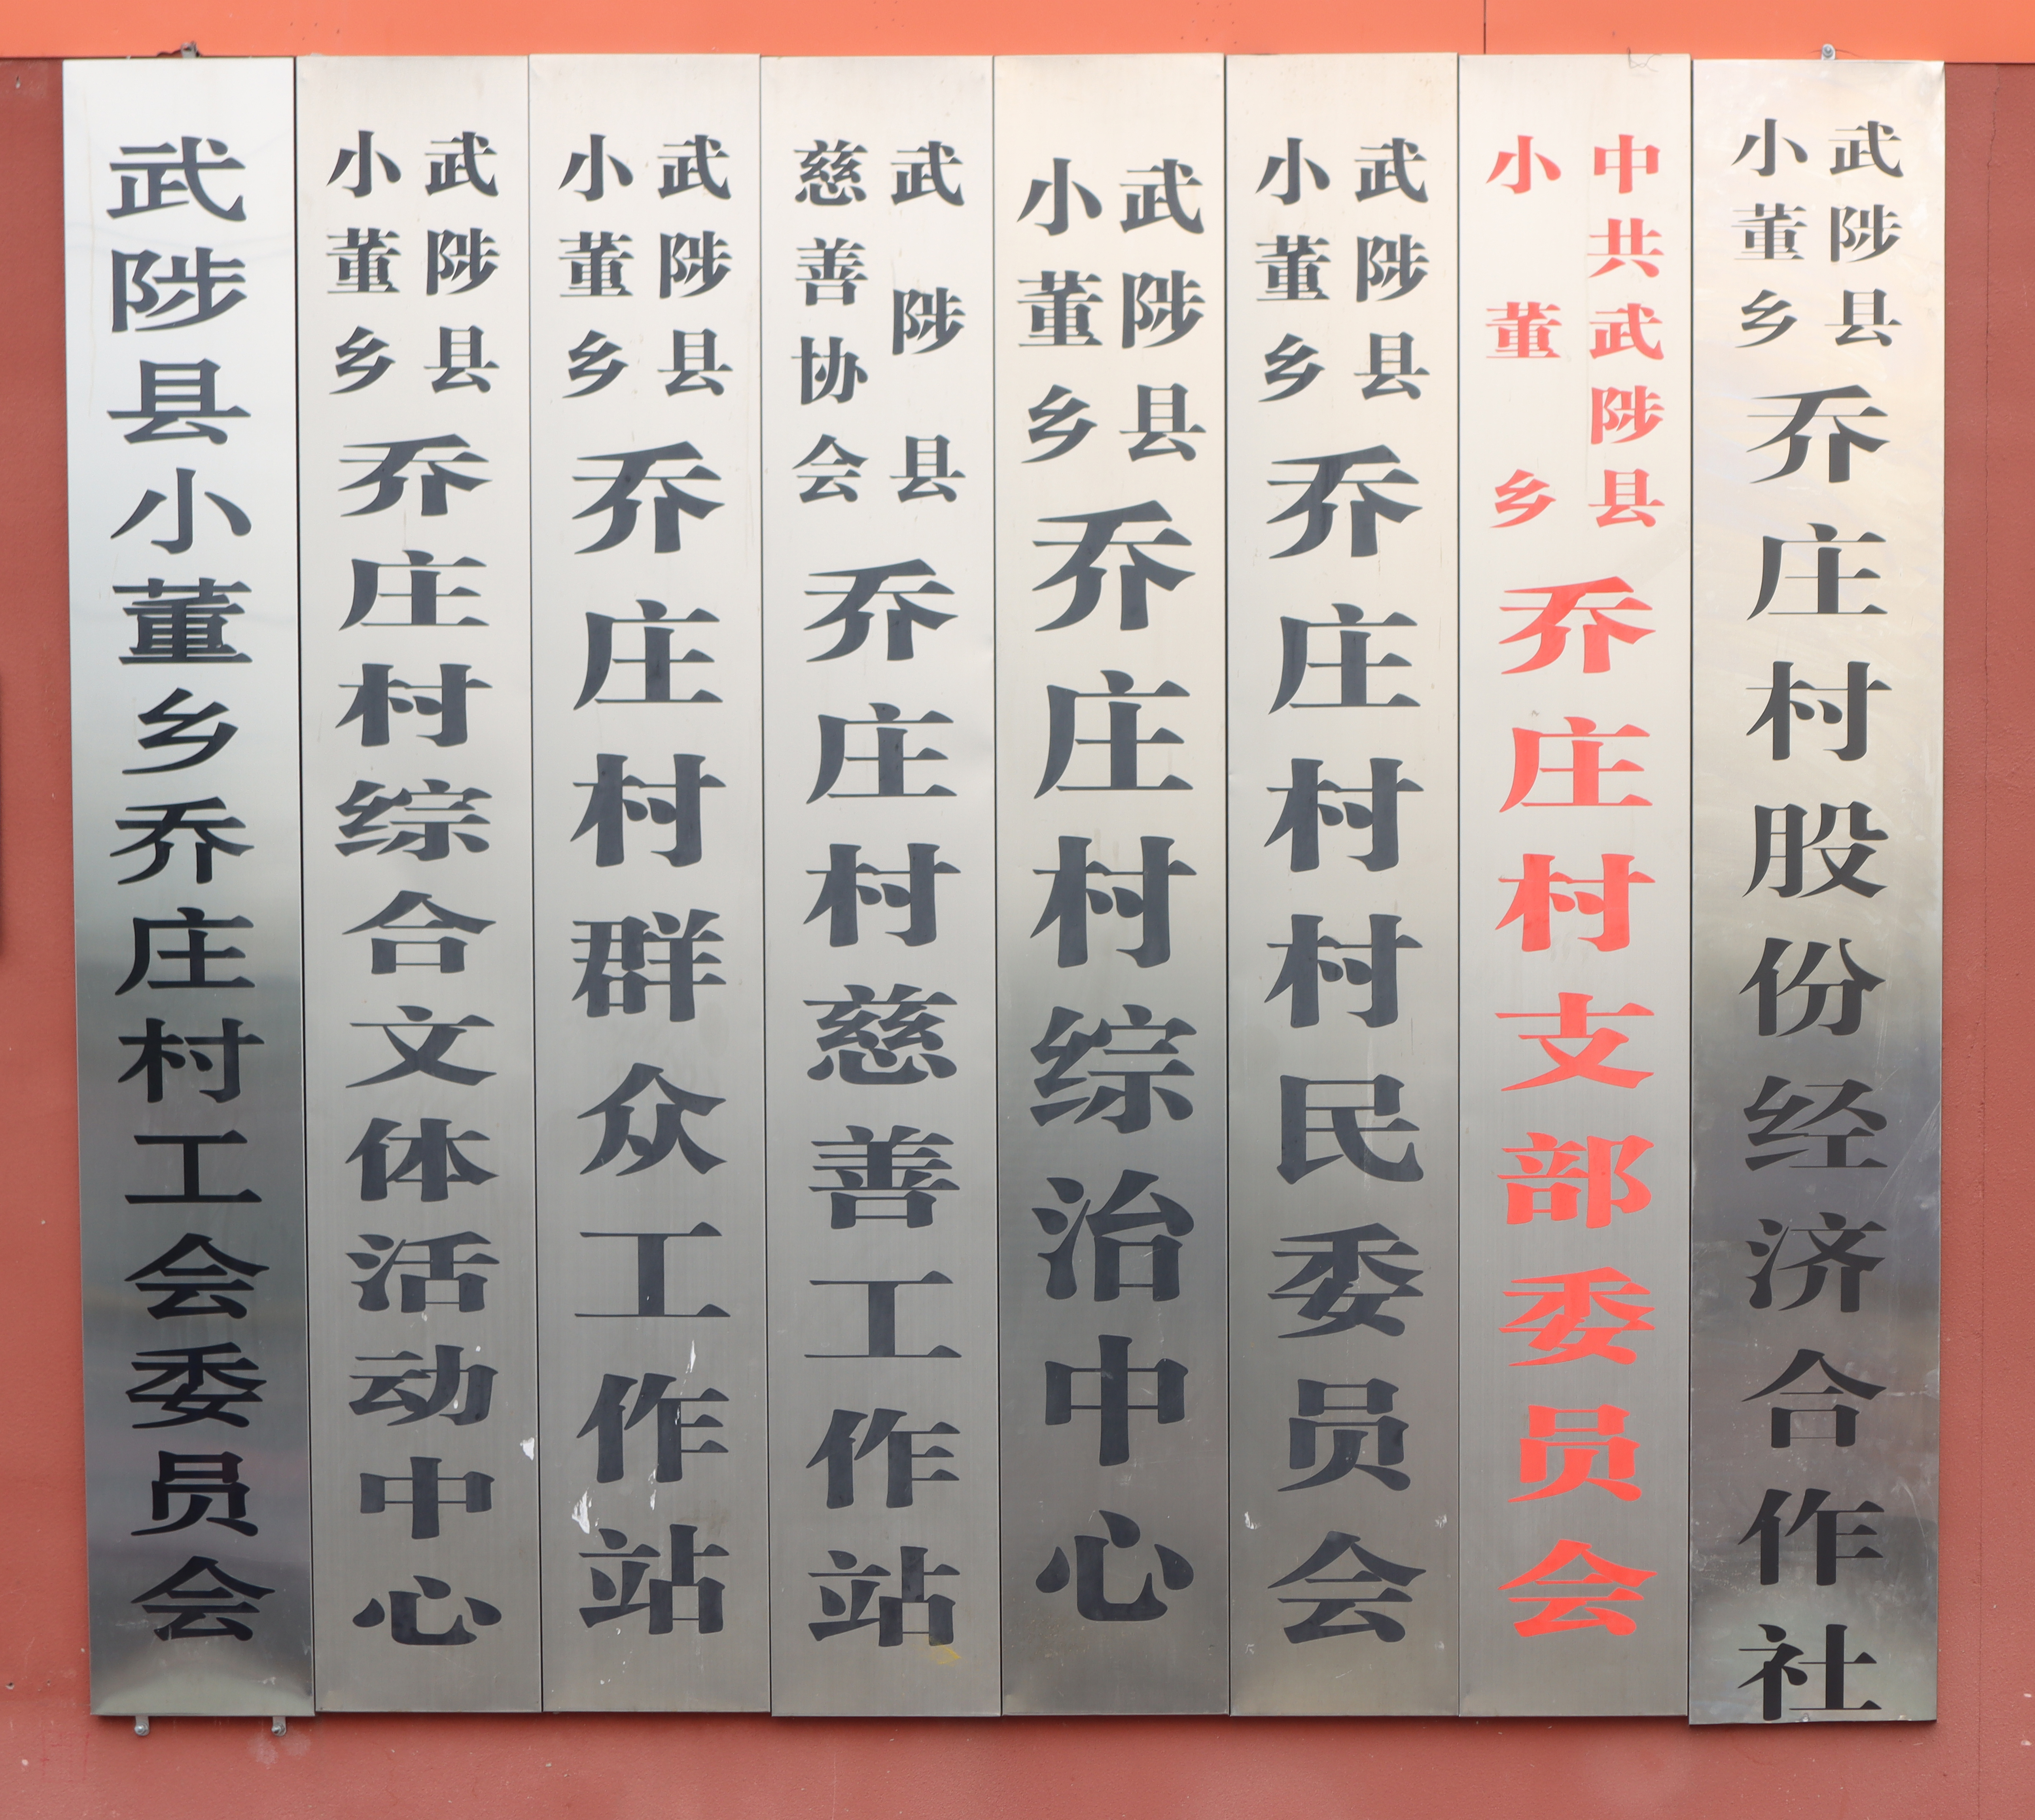 武陟县小董乡乔庄村工会委员会
武陟县
小董乡
乔庄村综合文体活动中心
武陟县
小董乡
乔庄村群众工作站
武陟县
慈善协会
乔庄村慈善工作站
武陟县
小董乡
乔庄村综治中心
武陟县
小董乡
乔庄村村民委员会
中共武陟县
小董乡
乔庄村支部委员会
武陟县
小董乡
乔庄村股份经济合作社